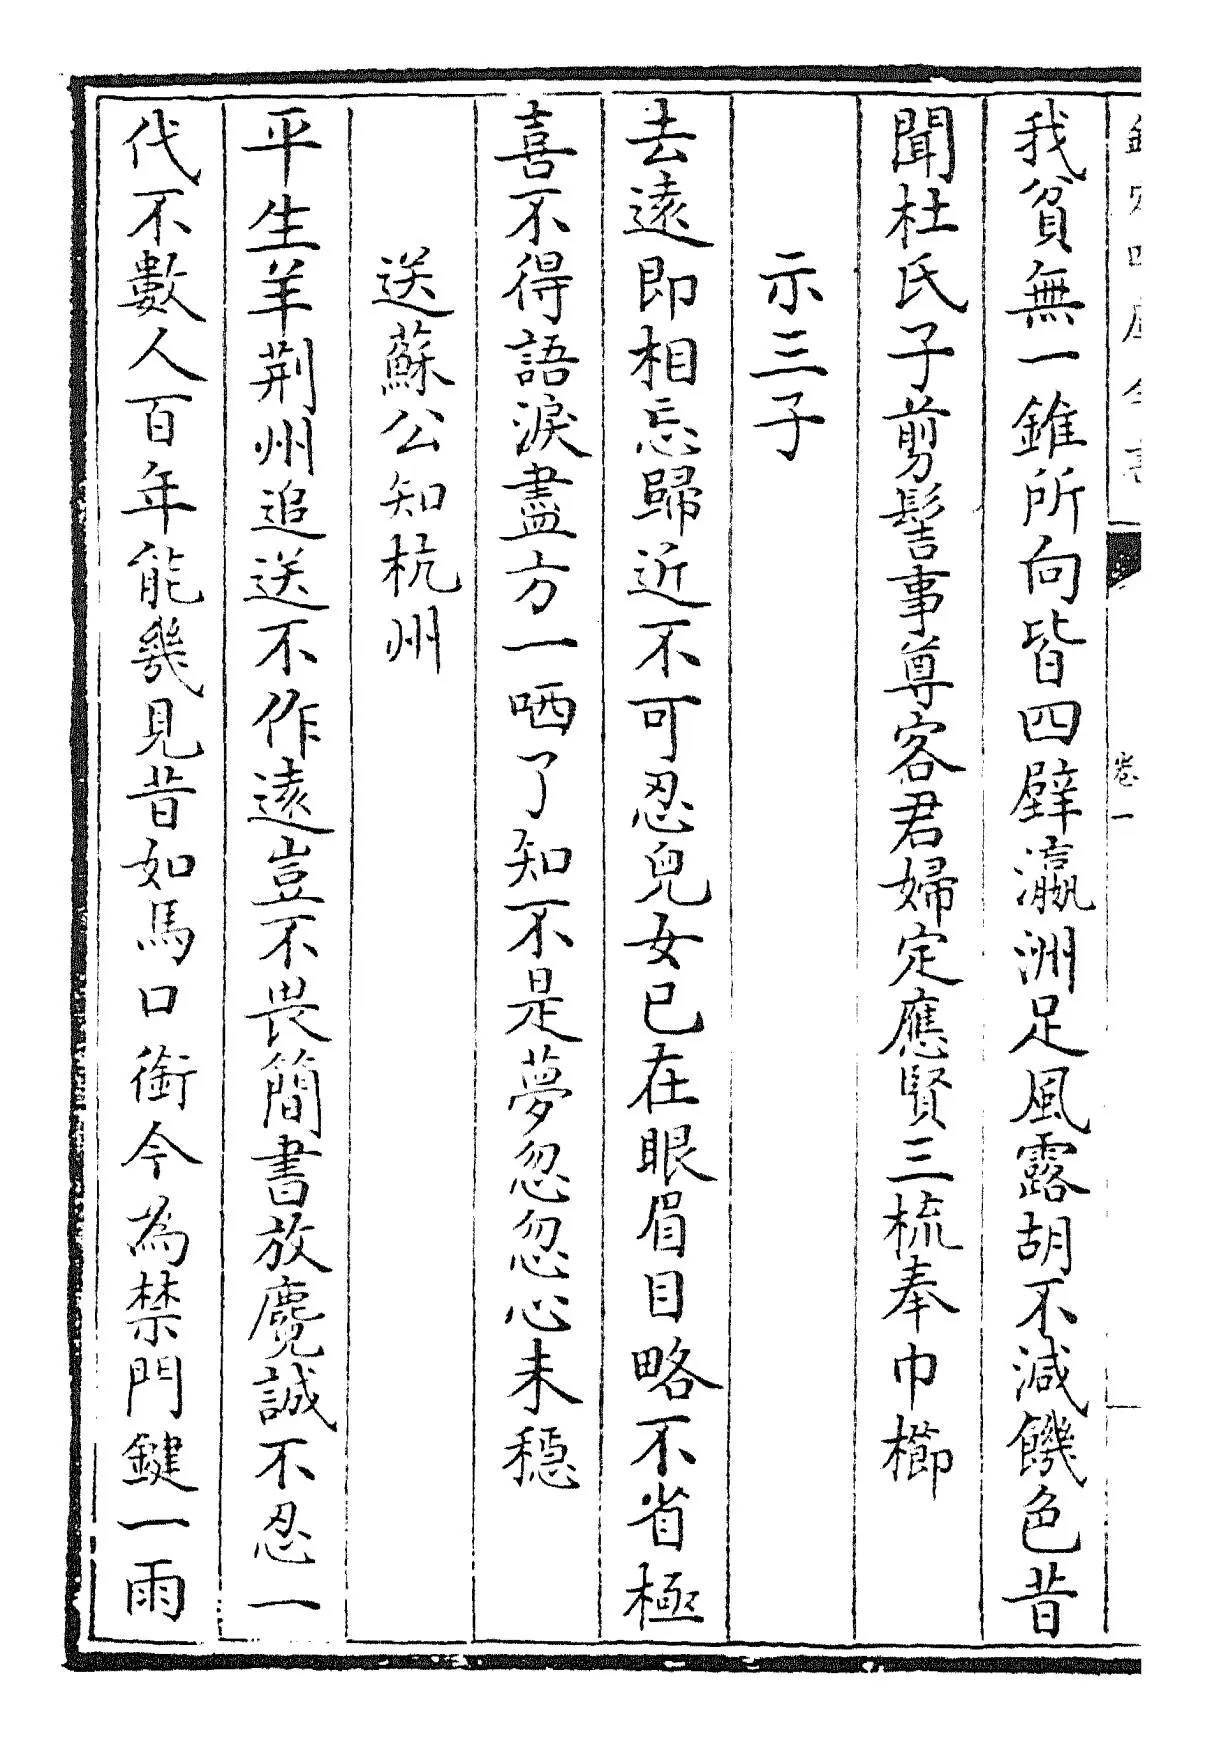 欽定四庫全書
卷一
我貧無一錐所向皆四壁瀛洲足風露胡不減饑色昔
聞杜氏子剪髻事尊客君婦定應賢三梳奉巾櫛
示三子
去遠即相忘歸近不可忍兒女已在眼眉目略不省極
喜不得語淚盡方一哂了知不是夢忽忽心未穩
送蘇公知杭州
平生羊荆州追送不作遠豈不畏簡書放麑誠不忍一
代不數人百年能幾見昔如馬口銜今為禁門鍵一雨